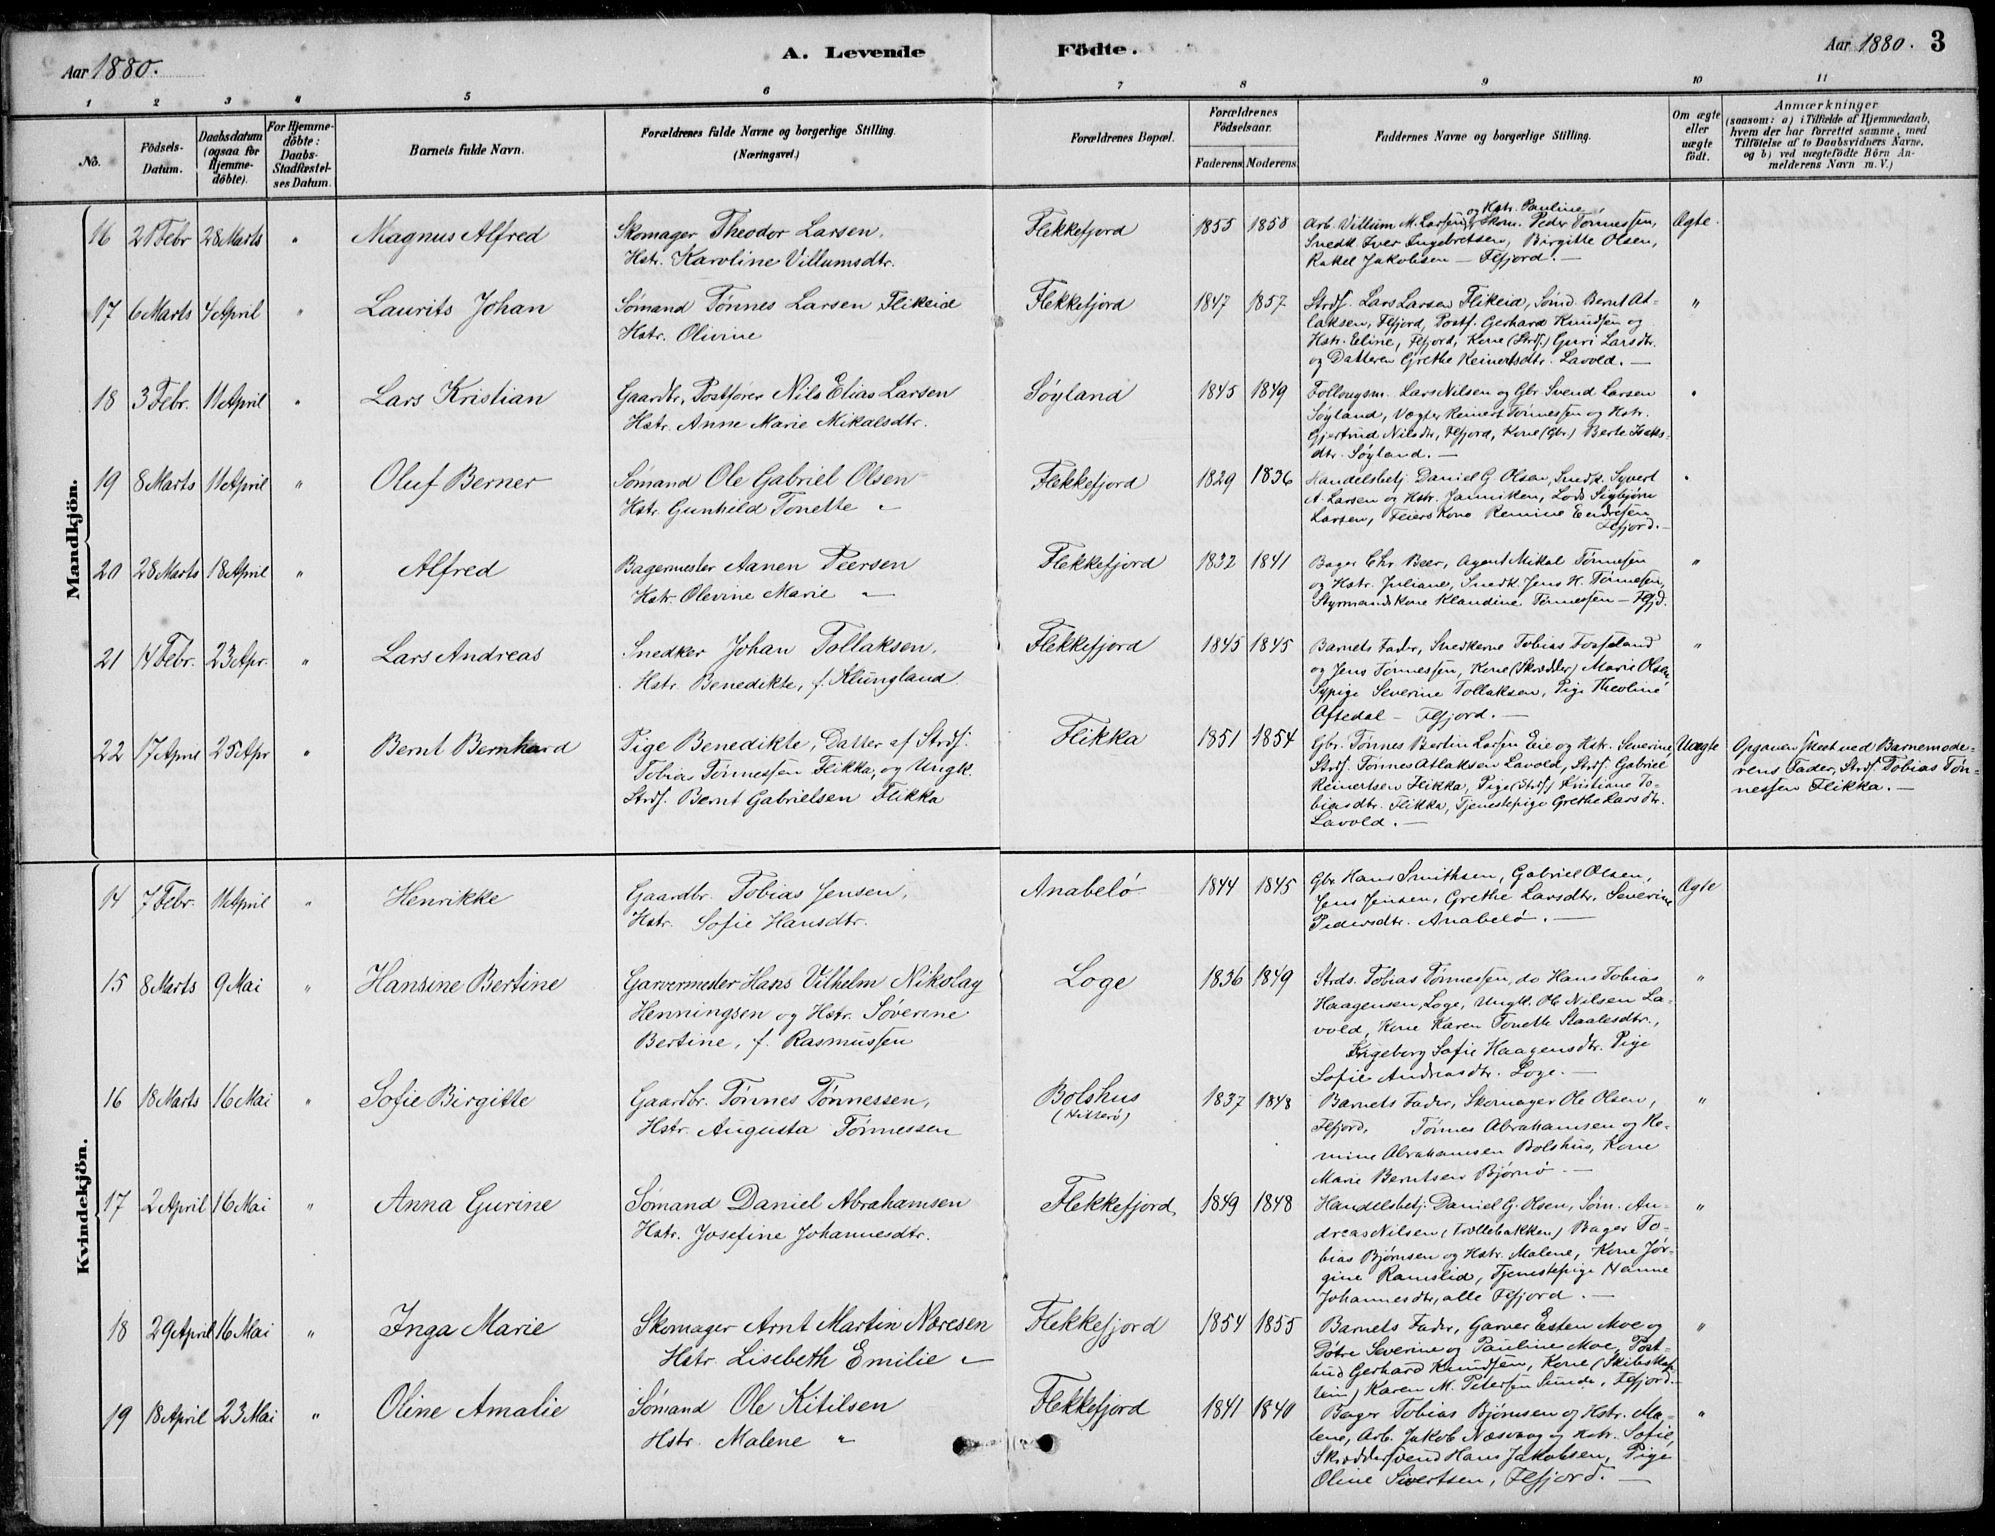 Aar 1880.
A. Levende Födte.
Aar 1880. 3
1 2 3 4 5 6 7 8 9 10 11
No.
Födsels-Datum.
Daabsdatum (ogsaa for Hjemme-døbte).
For Hjemme-döbte: Daabs-Stadfæstel-ses Datum.
Barnets fulde Navn.
Forældrenes fulde Navne og borgerlige Stilling.
(Næringsvei.)
Forældrenes Bopæl.
Forældrenes Födselsaar.
Faderens Moderens
Faddernes Navne og borgerlige Stilling.
Om ægte eller uægte födt.
Anmærkninger
(saasom: a) i Tilfælde af Hjemmedaab,
hvem der har forrettet samme, med
Tilföielse af to Daabsvidners Navne,
og b) ved uægtefödte Börn An-
melderens Navn m. V.)
Mandkjön.
16 21 Febr 28 Marts " Magnus Alfred
Skomager Theodor Larsen,
Hstr. Karoline Villumsdtr.
Flekkefjord 1855 1858
og Hstr. Pauline,
Arb. Villum M. Larsen, Skom. Peder Tönnessen,
Snedk. Iver Ingebretsen, Birgitte Olsen,
Rakel Jakobsen — Flfjord. —
Ægte.
17 6 Marts 4 April " Laurits Johan
Sömand Tönnes Larsen Flikeid
Hstr. Olivine
Flekkefjord 1847 1857
Strds. Lars Larsen Flikeid, Sömd. Bernt At-
laksen, Flfjord, Postf. Gerhard Knudsen og
Hstr. Eline, Flfjord, Kone (Strds.) Guri Larsdtr.
og Datteren Grethe Reinertsdtr. Lavold. —
"
18 3 Febr. 11 April " Lars Kristian
Gaardbr, Postförer Nils Elias Larsen
Hstr. Anne Marie Mikalsdtr.
Söyland 1845 1849
Follougsm. Lars Nilsen og Gbr. Svend Larsen
Söyland, Vægter Reinert Tönnessen og Hstr.
Gjertrud Nilsdtr, Flfjord, Kone (Gbr.) Berte Isaks-
dtr. Söyland. —
"
19 8 Marts 11 April " Oluf Berner
Sömand Ole Gabriel Olsen
Hstr. Gunhild Tonette "
Flekkefjord 1829 1836
Handelsbetj. Daniel G. Olsen, Snedk. Syvert
A. Larsen og Hstr. Janniken, Lods Sigbjörn
Larsen, Feiers Kone Remine Endresen
Flfjord. —
"
20 28 Marts 18 April " Alfred
Bagermester Aanen Peersen
Hstr. Olevine Marie "
Flekkefjord 1832 1841
Bager Chr. Beer, Agent Mikal Tönnesen
og Hstr. Juliane, Snedk. Jens H. Tönnesen,
Styrmandskone Klandine Tönnessen — Flfjd.
"
21 14 Febr. 23 Apr. " Lars Andreas
Snedker Johan Tollaksen,
Hstr. Benedikte, f. Klungland
Flekkefjord 1845 1845
Barnets Fader, Snedkerne Tobias Fosseland
og Jens Tönnessen, Kone (Skrædder) Marie Olsen
Sypige Severine Tollaksen, Pige Theoline
Aftedal — Flfjord. —
"
22 17 April 25 Apr " Bernt Bernhard
Pige Benedikte, Datter af Strds.
Tobias Tönnessen Flikka, og Ungk.
Strds. Bernt Gabrielsen Flikka
Flikka 1851 1854
Gbr. Tönnes Bertin Larsen Eie og Hstr. Severine
Strds. Tönnes Atlaksen Lavold, Strds. Gabriel
Reinertsen Flikka, Pige (Strds) Kristiane To-
biasdtr. Flikka, Tjenestepige Grethe Larsdtr.
Lavold. —
Uægte
Opgaven skeet ved Barnemode-
rens Fader, Strds. Tobias Tön-
nessen Flikka. —
Kvindekjön.
14 7 Febr. 11 April " Henrikke
Gaardbr. Tobias Jensen,
Hstr. Sofie Hansdtr.
Anabelö 1844 1845
Gbr Hans Smithsen, Gabriel Olsen,
Jens Jensen, Grethe Larsdtr. Severine
Pedersdtr. Anabelö. —
Ægte
15 8 Marts 9 Mai " Hansine Bertine
Garvermester Hans Vilhelm Nikolay
Henningsen og Hstr. Söverine
Bertine, f. Rasmussen
Loge 1836 1849
Strds. Tobias Tönnessen, do Hans Tobias
Haagensen, Loge, Ungk. Ole Nilsen La-
vold, Kone Karen Tonette Staalesdtr.,
Ingeborg Sofie Haagensdtr. Pige
Sofie Andreasdtr. Loge. —
"
16 18 Marts 16 Mai " Sofie Birgitte
Gaardbr. Tönnes Tönnessen,
Hstr. Augusta Tönnessen
Bolshus
(Hitterö)
1837 1848
Barnets Fader, Skomager Ole Olsen,
Flfjord, Tönnes Abrahamsen og Re-
mine Abrahamsen Bolshus, Kone
Marie Berntsen Björnö. —
"
17 2 April 16 Mai " Anna Gurine
Sömand Daniel Abrahamsen
Hstr. Josefine Johannesdtr.
Flekkefjord, 1849 1848
Handelsbetj. Daniel G. Olsen, Söm. An-
dreas Nilsen (Trollebakken) Bager To-
bias Björnsen og Hstr. Malene, Kone Jör-
gine Ramslid, Tjenestepige Hanne
Johannesdtr, alle Flfjord. —
"
18 29 April 16 Mai " Inga Marie
Skomager Arnt Martin Næresen
Hstr. Lisebeth Emilie "
Flekkefjord 1854 1855
Barnets Fader, Garver Esten Moe og
Dötre Severine og Pauline Moe, Post-
bud Gerhard Knudsen, Kone
Karen M. Petersen Sunde, Flfjord. —
"
19 18 April 23 Mai " Oline Amalie
Sömand Ole Kitilsen
Hstr. Malene "
Flekkefjord 1841 1840
Bager Tobias Björnsen og Hstr. Ma-
lene, Arb. Jakob Næsvaag og Hstr. Sofie,
Skræddersvend Hans Jakobsen, Pige
Oline Sivertsen, Flfjord. —
"